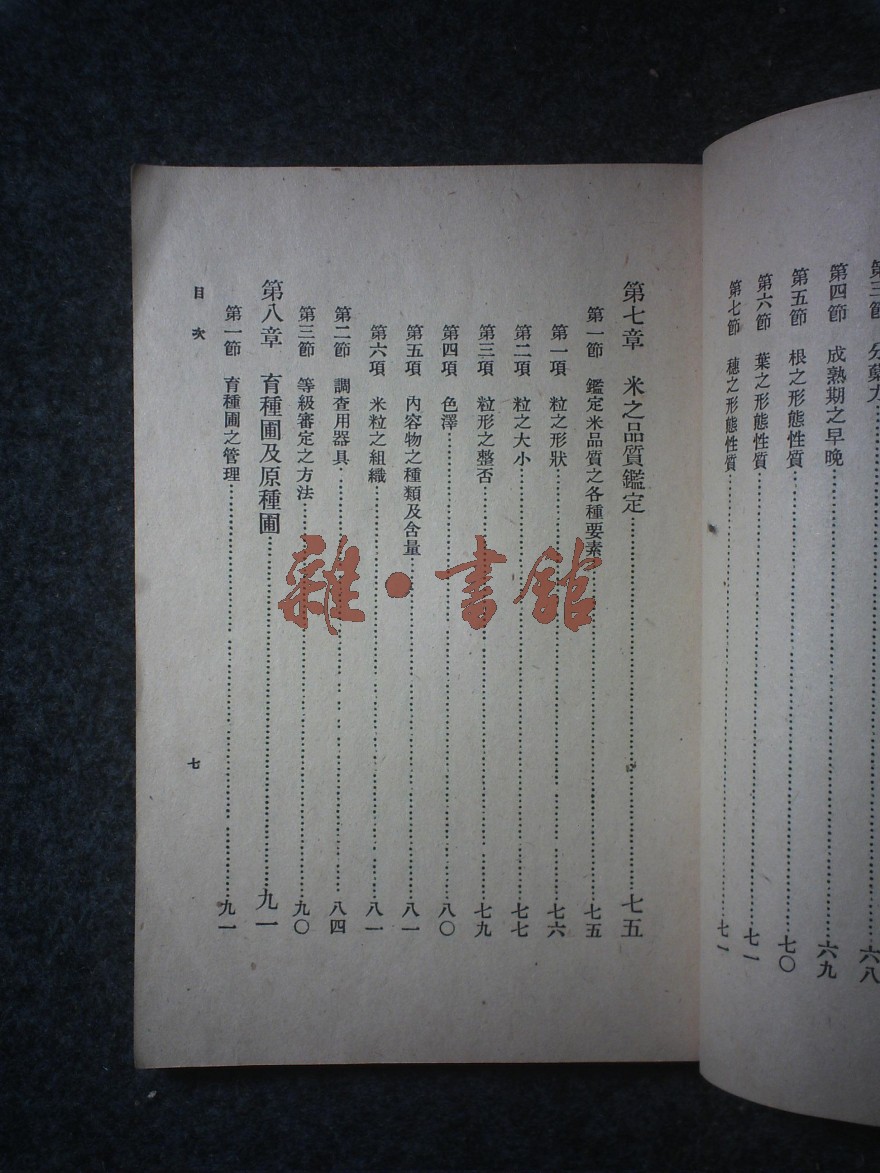 第三節 分蘗力……六八
第四節 成熟期之早晚……六九
第五節 根之形態性質……七〇
第六節 葉之形態性質……七一
第七節 穗之形態性質……七一
第七章 米之品質鑑定……七五
第一節 鑑定米品質之各種要素……七五
第一項 粒之形狀……七六
第二項 粒之大小……七七
第三項 粒形之整否……七九
第四項 色澤……八〇
第五項 內容物之種類及含量……八一
第六項 米粒之組織……八一
第二節 調查用器具……八四
第三節 等級審定之方法……九〇
第八章 育種圃及原種圃……九一
第一節 育種圃之管理……九一
目次
七
雜·書館